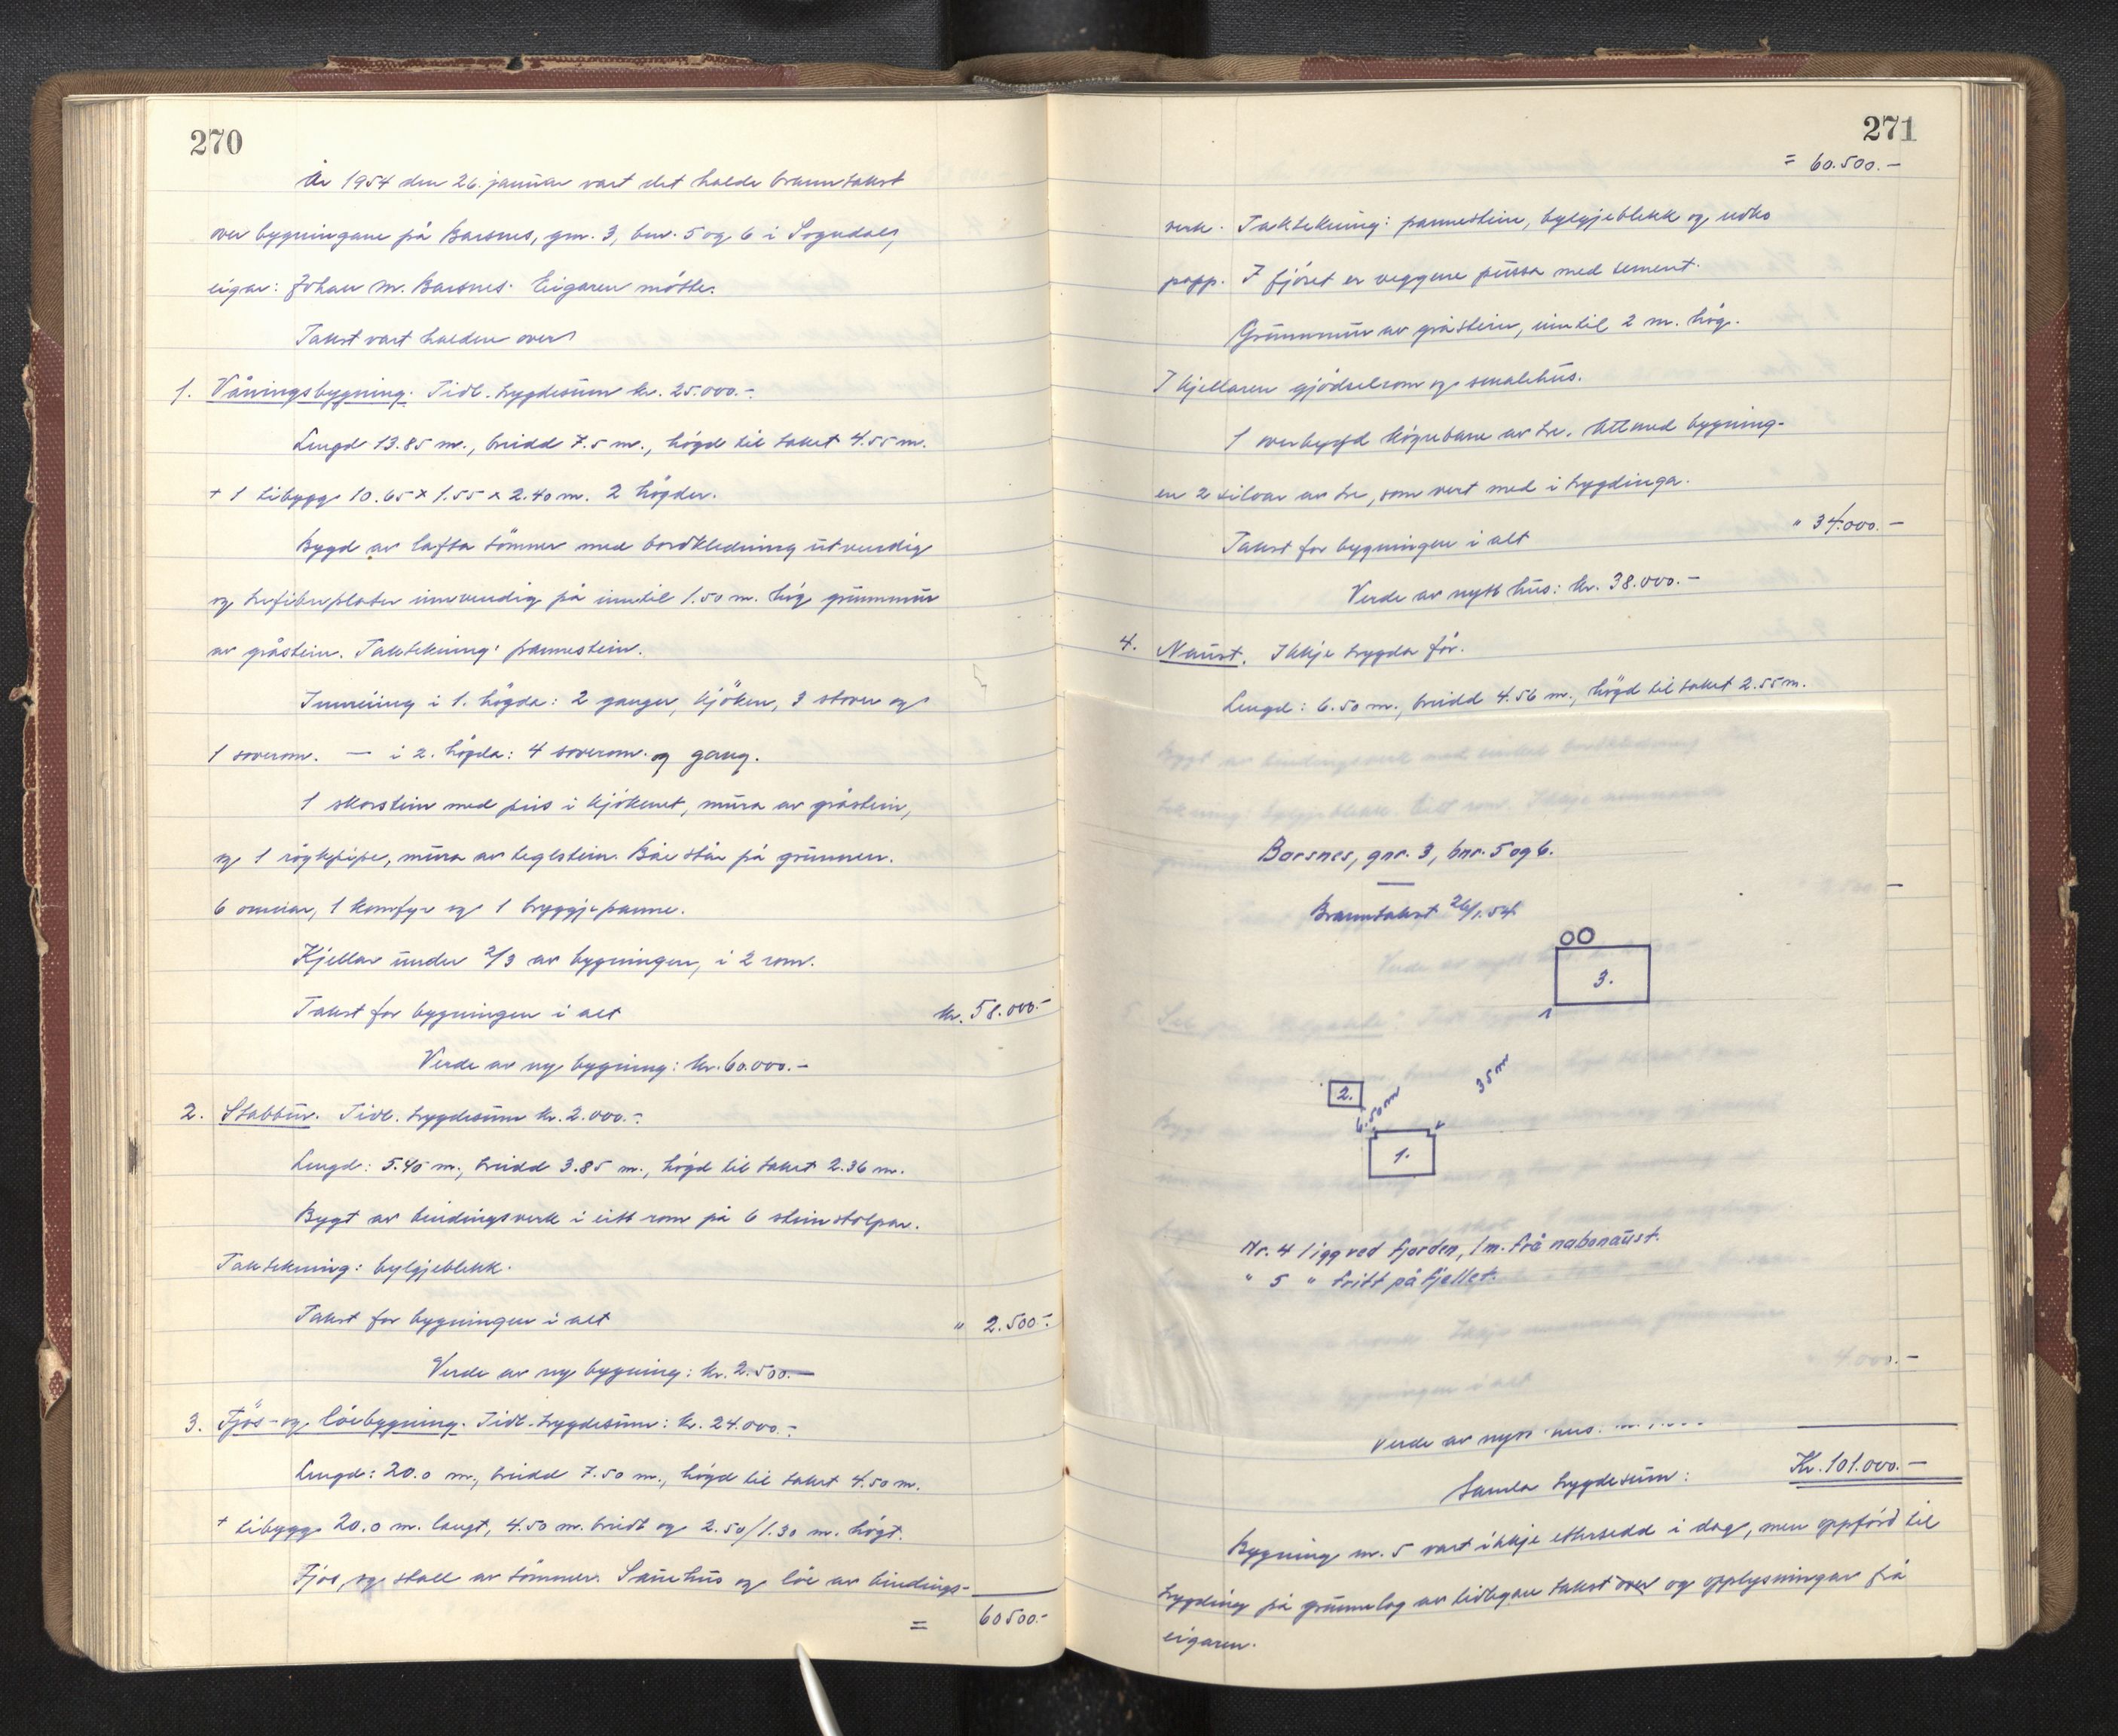 270
År 1954 den 26. januar vart det halde branntakst
over bygningane på Barsnes, gnr. 3, bnr. 5 og 6 i Sogndal,
eigar: Johan M. Barsnes. Eigaren møtte.
Takst vart halden over
1. Våningsbygning. Tidl. trygdesum kr. 25.000.-
Lengd 13.85 m., breidd 7.5 m., högd til taket 4.55 m.
+ 1 tibygg 10.65 x 1.55 x 2.40 m. 2 högder.
Bygd av lafta tömmer med bordkledning utvendig
og trefiberplater innvendig på inntil 1.50 m. høg grunnmur
av gråstein. Taktekning: pannestein.
Innreiing i 1. högda: 2 ganger, kjöken, 3 stover og
1 soverom. — i 2. högda: 4 soverom og gang.
1 skorstein med peis i kjökenet, mura av gråstein,
og 1 røykpipe, mura av teglstein. Båe står på grunnen.
6 omnar, 1 komfyr og 1 bryggjepanne.
Kjellar under 2/3 av bygningen, i 2 rom.
Takst for bygningen i alt kr. 58.000.-
Verde av ny bygning: kr. 60.000.-
2. Stabbur. Tidl. trygdesum kr. 2.000.-
Lengd: 5.40 m., breidd 3.85 m., högd til taket 2.36 m.
Bygt av bindingsverk i eitt rom på 6 steinstolpar.
Taktekning: bylgjeblekk.
Takst for bygningen i alt " 2.500.-
Verde av ny bygning: kr. 2.500.-
3. Fjös- og löebygning. Tidl. trygdesum: kr. 24.000.-
Lengd: 20.0 m., breidd 7.50 m., högd til taket 4.50 m.
+ tibygg 20.0 m. langt, 4.50 m. breidt og 2.50/1.30 m. högt.
Fjös og stall av tömmer. Sauehus og löe av bindings-
= 60500.-
271
= 60.500.-
verk. Taktekning: pannestein, bylgjeblekk og
papp. I fjöset er veggene pussa med sement.
Grunnmur av gråstein, inntil 2 m. høg.
I kjellaren gjödselrom og smalehus.
1 overbygd köyrebane av tre. Attmed bygning-
en 2 siloar av tre, som vert med i trygdinga.
Takst for bygningen i alt " 34.000.-
Verde av nytt hus: kr. 38.000.-
4. Naust. Ikkje trygda før.
Lengd: 6.50 m., breidd 4.56 m., högd til taket 2.55 m.
Barsnes, gnr. 3, bnr. 5 og 6.
Branntakst 26/1.54
3.
35 m
2.
6.50 m
1.
Nr. 4 ligg ved fjorden, 1 m. frå nabonaust.
" 5 " fritt på fjellet.
4.000.-
Verde av nytt hus:
Samla trygdesum: Kr. 101.000.-
Bygning nr. 5 vart ikkje ettersedd i dag, men oppførd til
trygding på grunnlag av tidlegare takst over og opplysningar frå
eigaren.